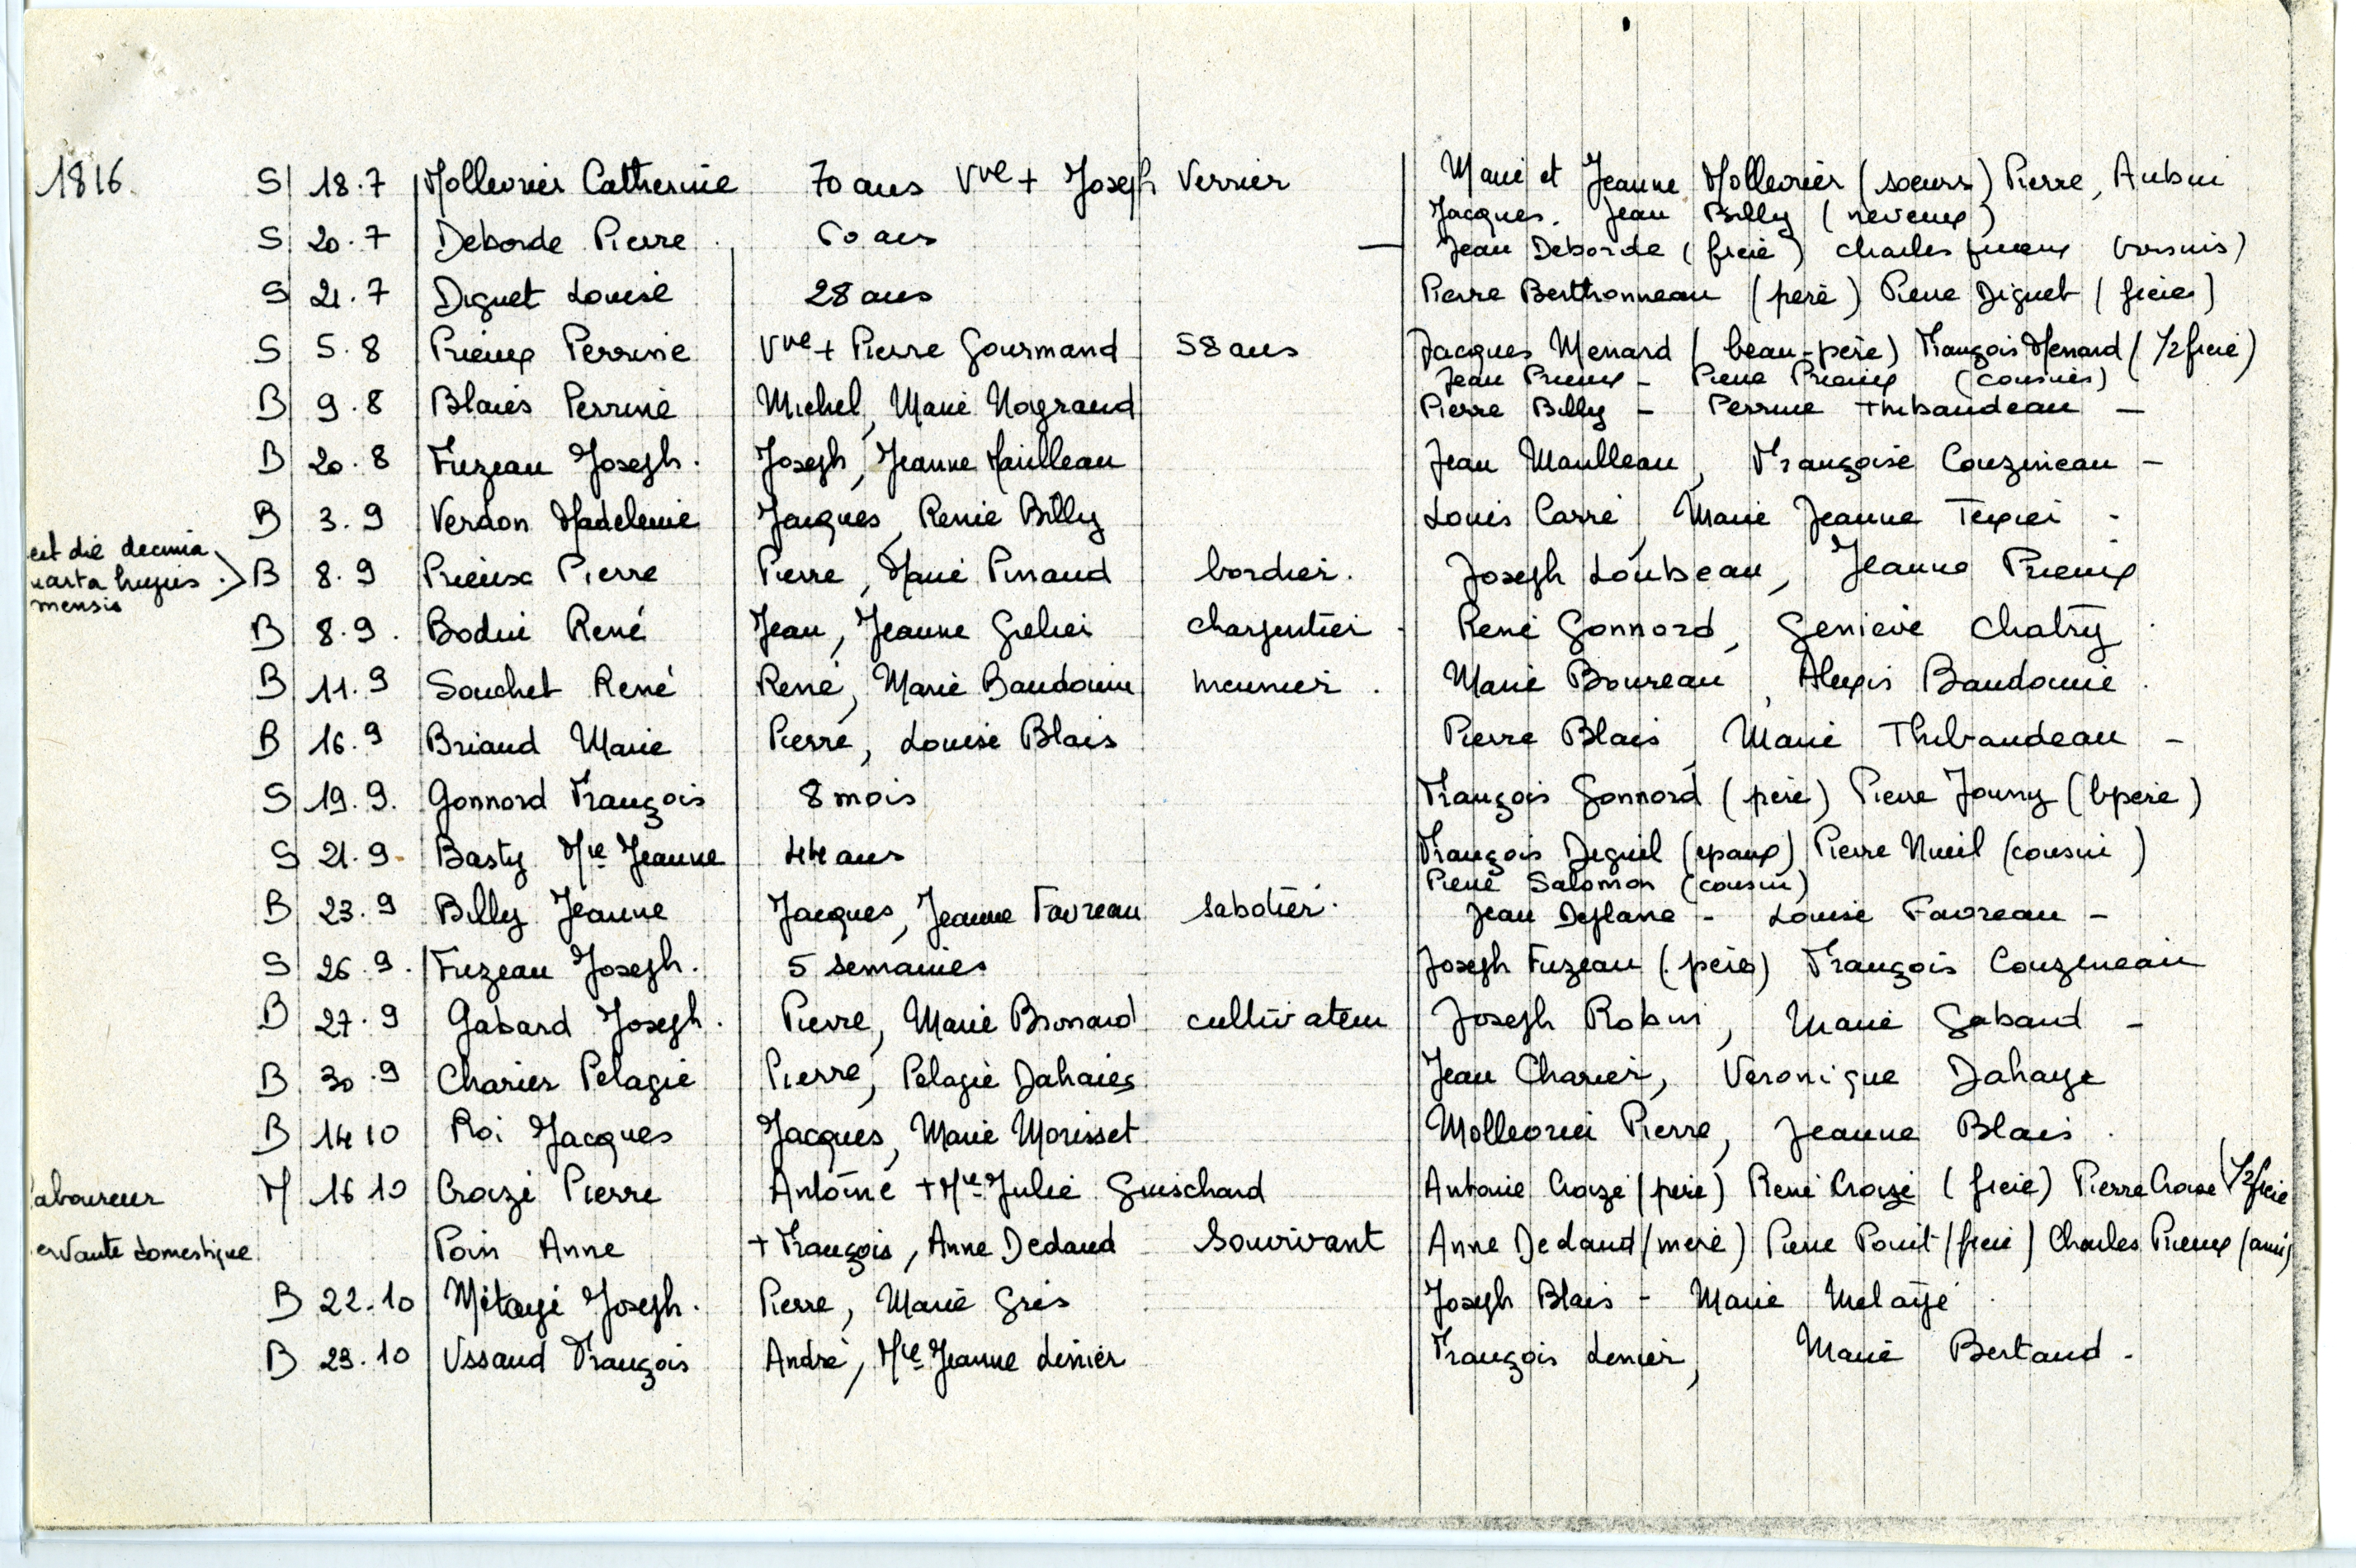 1816. S 18.7 Mollevrier Catherine 70 ans Vve + Joseph Verrier Marie et Jeanne Mollevrier (sœurs) Pierre, Aubin
Jacques. Jean Billy (neveux)
S 20.7 Deborde Pierre. 60 ans — Jean Deborde (frère) Charles (voisins)
S 21.7 Diguet Louise 28 ans Pierre Berthonneau (père) Pierre Diguet (frère)
S 5.8 Prieux Perrine Vve + Pierre Gourmand 58 ans Jacques Menard (beau-père) François Menard (1/2 frère)
Jean Prieux - Pierre Prieux (cousins)
B 9.8 Blais Perrine Michel, Marie Nograud Pierre Billy - Perrine Thibaudeau -
B 20.8 Fuzeau Joseph. Joseph, Jeanne Maulleau Jean Maulleau, Françoise Couzineau -
B 3.9 Verdon Madeleine Jacques, Renée Billy Louis Carré, Marie Jeanne Texier -
est die decima
uarta hujus
mensis
> B 8.9 Prieux Pierre Pierre, Marie Pinaud bordier. Joseph Loubeau, Jeanne Prieux
B 8.9. Bodin René Jean, Jeanne Grelier charpentier - René Gonnord, Genieve Chatry.
B 11.9 Souchet René René, Marie Baudouin meunier. Marie Boureau, Alexis Baudouin.
B 16.9 Briaud Marie Pierre, Louise Blais Pierre Blais, Marie Thibaudeau -
S 19.9. Gonnord François 8 mois François Gonnord (père) Pierre Jouny (bpère)
S 21.9. Basty Mie Jeanne 44 ans François Deguil (epoux) Pierre Nueil (cousin)
Pierre Salomon (cousin)
B 23.9 Billy Jeanne Jacques, Jeanne Favreau sabotier. Jean Deplane - Louise Favreau -
S 26.9. Fuzeau Joseph. 5 semaines Joseph Fuzeau (père) François Couzineau
B 27.9 Gabard Joseph. Pierre, Marie Bronard cultivateur Joseph Robin, Marie Gabard -
B 30.9 Charier Pelagie Pierre, Pelagie Dahaies Jean Charier, Veronique Dahaye
B 14 10 Roi Jacques Jacques, Marie Morisset Mollevrier Pierre, Jeanne Blais.
aboureur M 16 10 Croizé Pierre Antoine + Mie Julie Guischard Antoine Croizé (père) René Croizé (frère) Pierre Croize (1/2 frère
ervante domestique Poin Anne + François, Anne Dedaud Souvivant Anne Dedaud (mère) Pierre Pouit (frère) Charles Prieux (ami)
B 22.10 Métayé Joseph. Pierre, Marie Gris Joseph Blais - Marie Metayé.
B 23.10 Ussaud François André, Mie Jeanne Lenier François Lenier, Marie Bertaud -